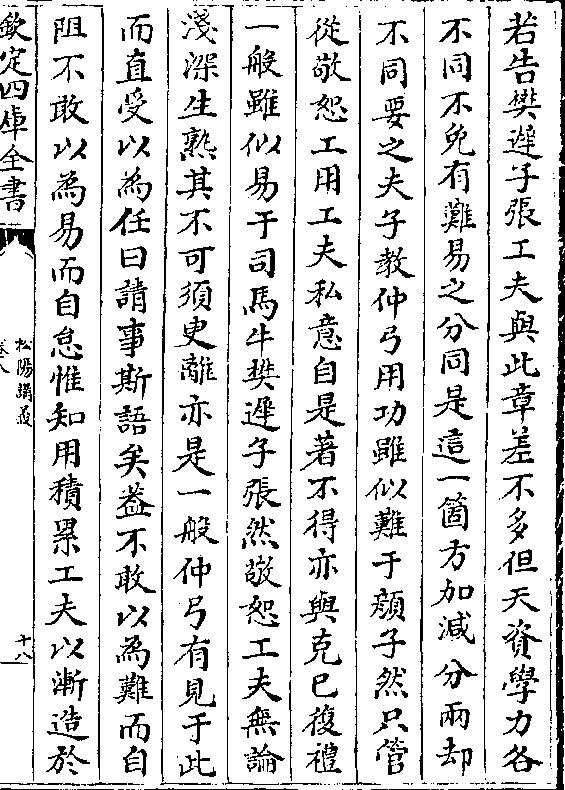 若告樊遲子張工夫與此章差不多但天資學力各
不同不免有難易之分同是這一箇方加減分兩却
不同要之夫子教仲弓用功雖似難于顔子然只管
從敬恕工用工夫私意自是著不得亦與克已復禮
一般雖似易于司馬牛樊遲子張然敬恕工夫無論
淺深生熟其不可須臾離亦是一般仲弓有見于此
而直受以為任曰請事斯語矣葢不敢以為難而自
阻不敢以為易而自怠惟知用積累工夫以漸造於
欽定四庫全書
松陽講義
卷八
十八